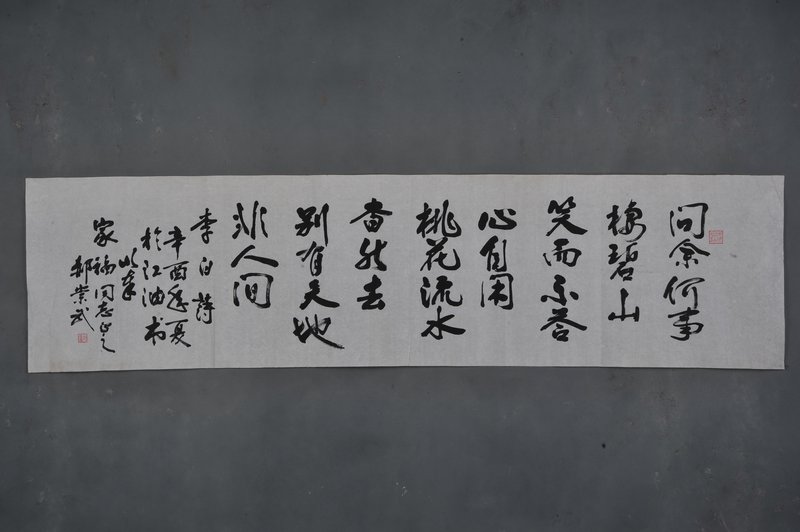 问余何事
棲碧山
笑而不答
心自闲
桃花流水
杳然去
别有天地
非人间
李白诗
辛酉年夏
於江油书
以奉
家福同志正之
郭崇武